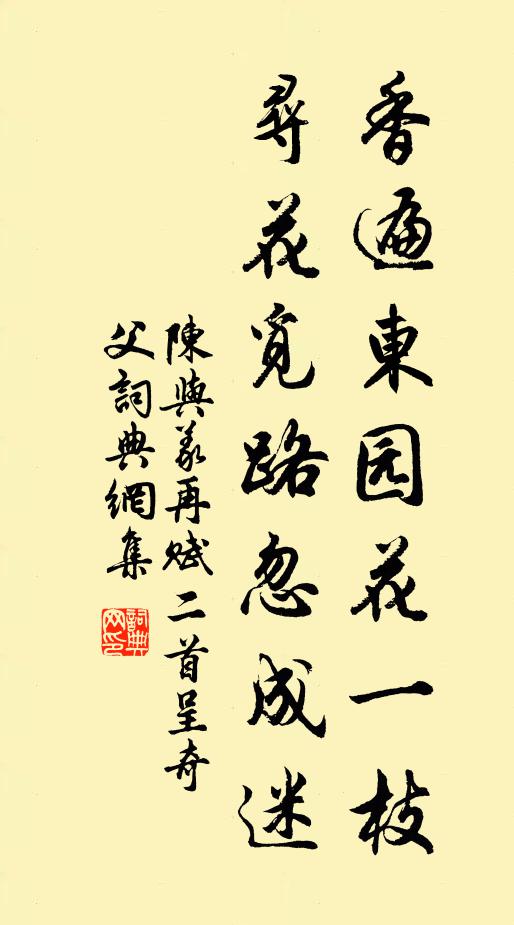 香遍東园花一枝
尋花覓路忽成迷
陳與義再賦二首呈奇
父詞典網集
詞典
网印